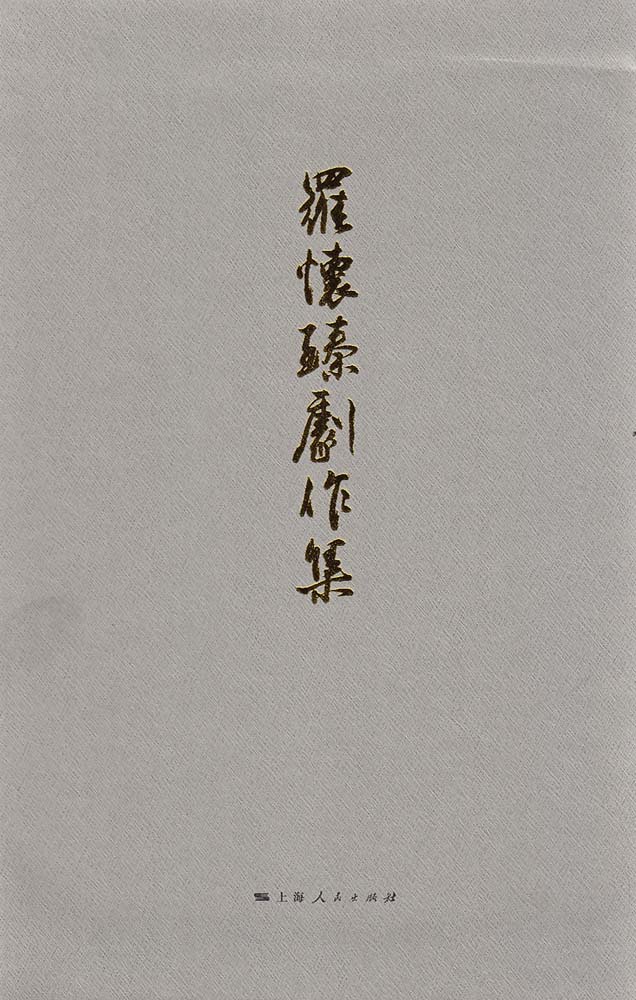 羅懷臻劇作集
上海人民出版社